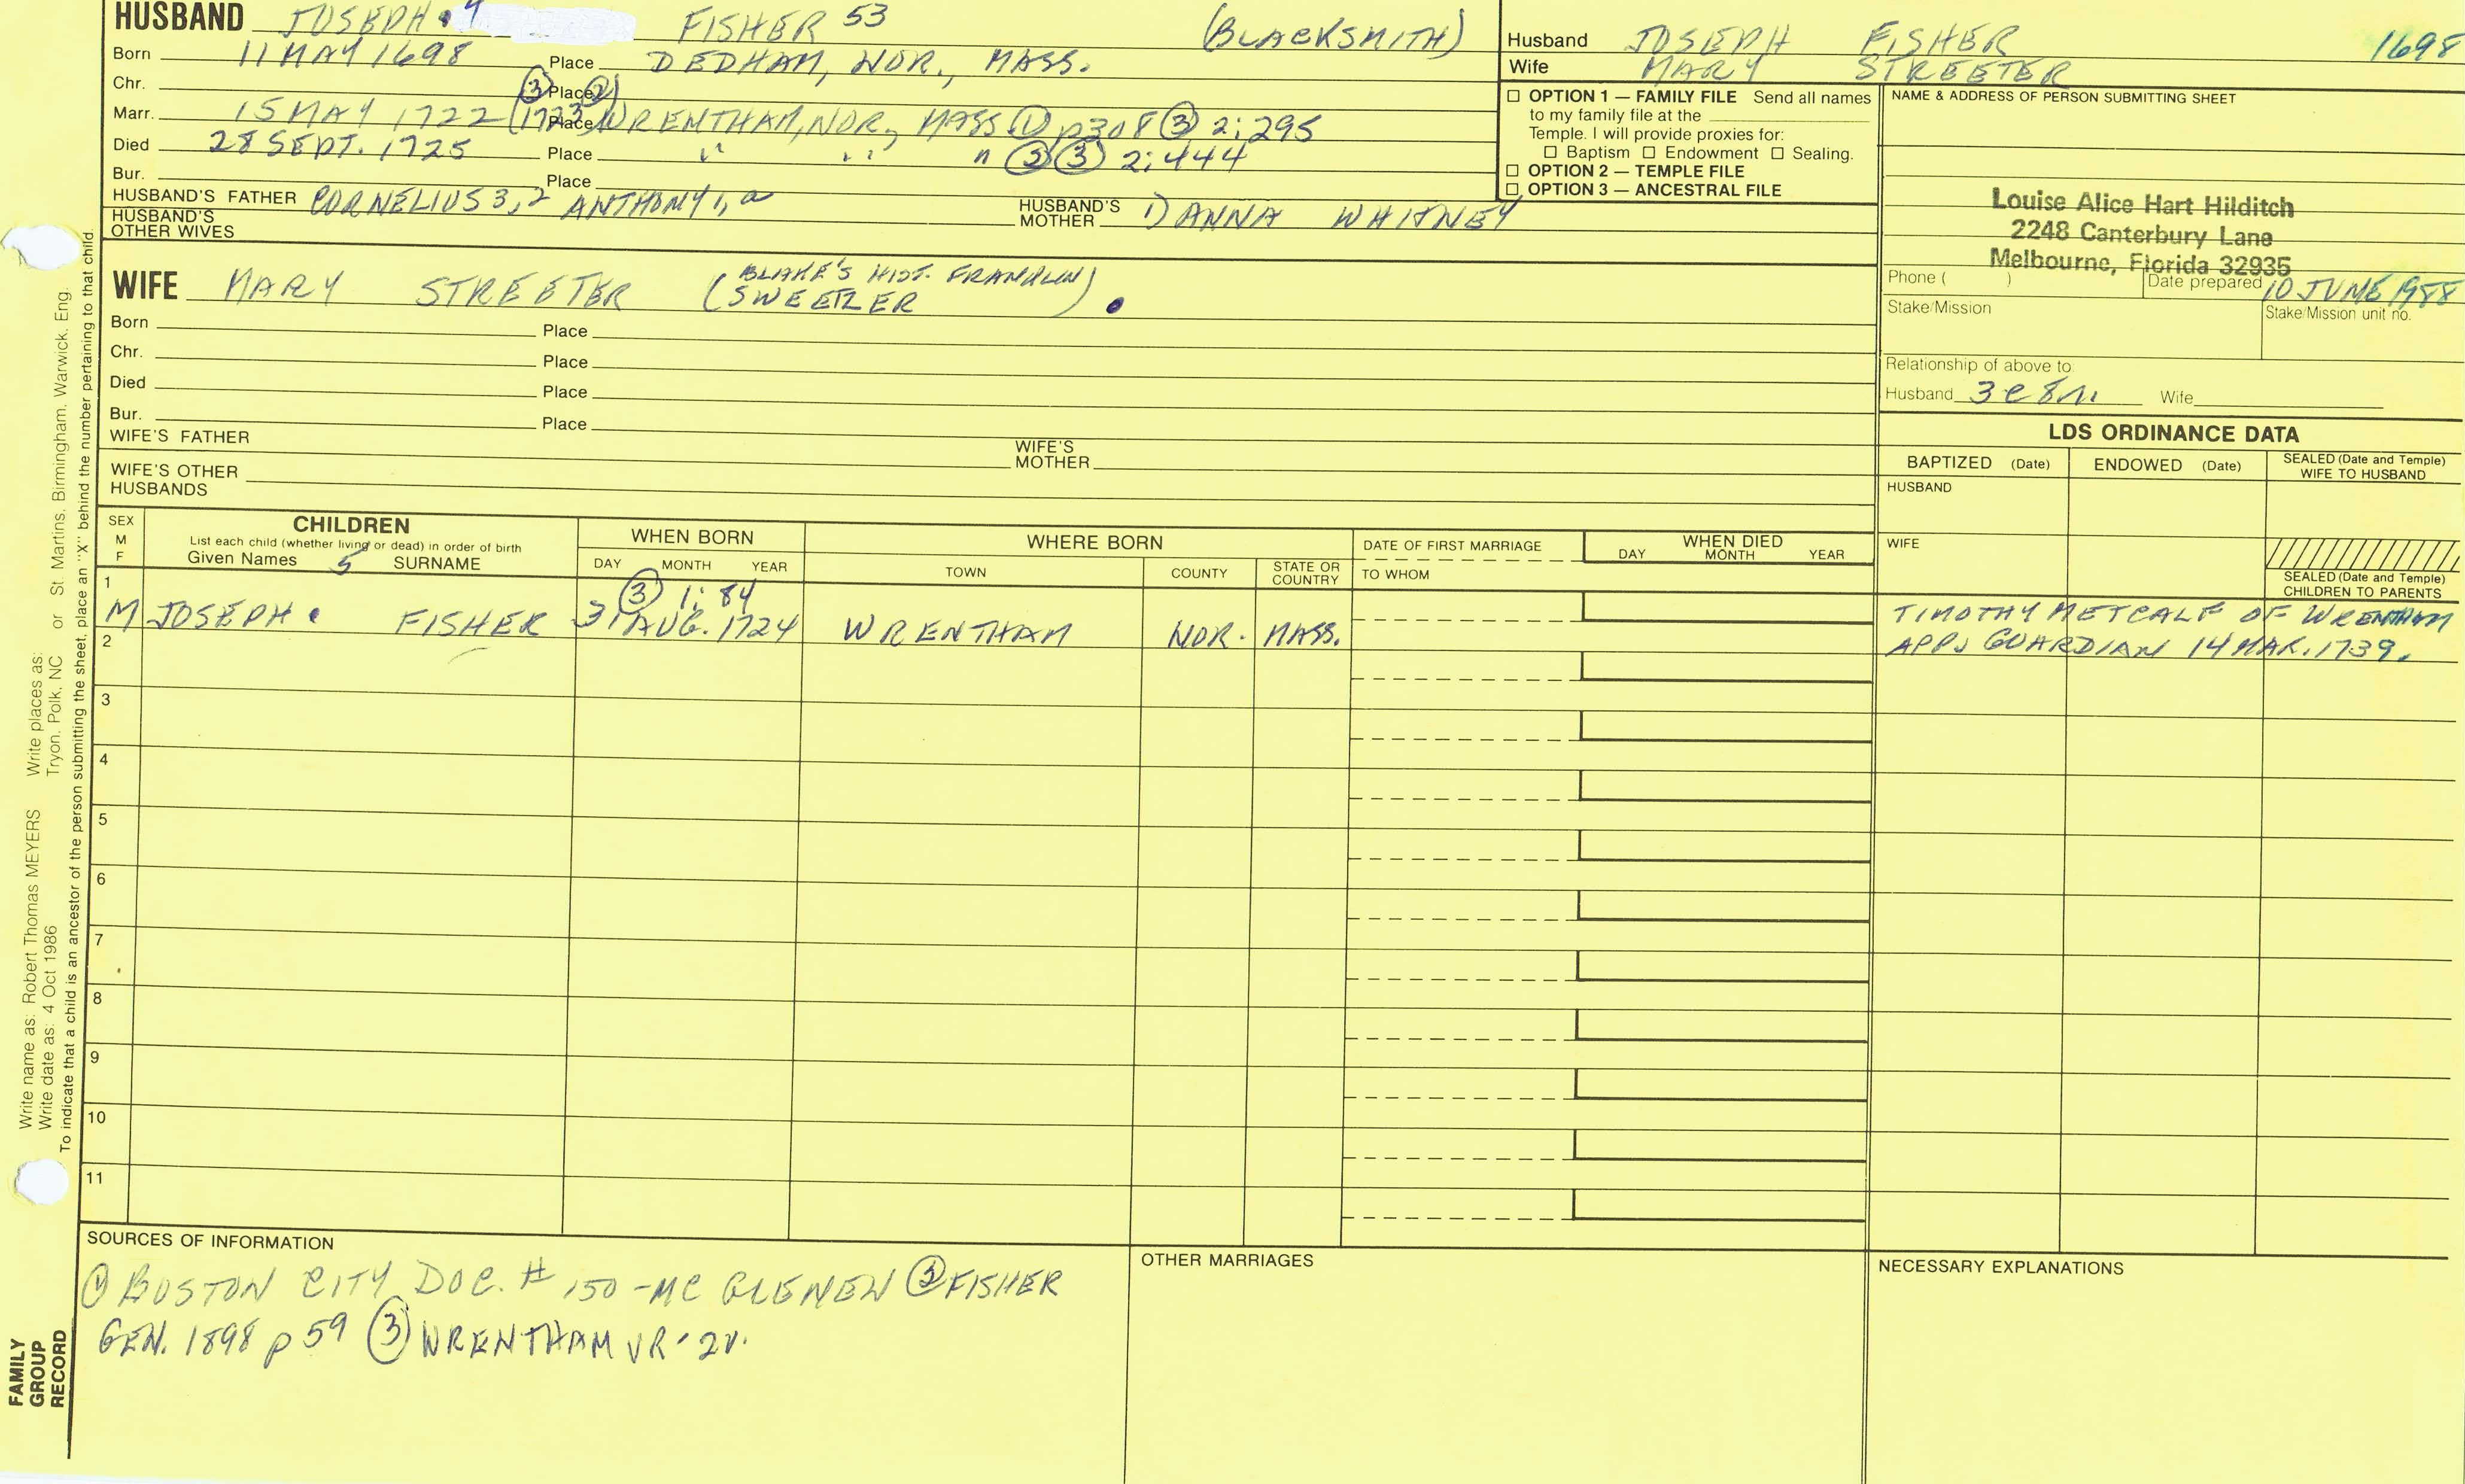 HUSBAND JOSEPH 4 FISHER 53 (BLACKSMITH)
Born 11 MAY 1698 Place DEDHAM, NOR., MASS.
Chr. Place
Marr. 15 MAY 1722 (1723 ③ ②) Place WRENTHAM, NOR., MASS ① p308 ③ 2:295
Died 28 SEPT. 1725 Place " " " ③ 2:444
Bur. Place
HUSBAND'S FATHER CORNELIUS 3, 2 ANTHONY 1, a HUSBAND'S MOTHER 1) ANNA WHITNEY
HUSBAND'S OTHER WIVES
Husband JOSEPH FISHER 1698
Wife MARY STREETER
☐ OPTION 1 — FAMILY FILE Send all names
to my family file at the
Temple. I will provide proxies for:
☐ Baptism ☐ Endowment ☐ Sealing.
☐ OPTION 2 — TEMPLE FILE
☐ OPTION 3 — ANCESTRAL FILE
NAME & ADDRESS OF PERSON SUBMITTING SHEET
Louise Alice Hart Hilditch
2248 Canterbury Lane
Melbourne, Florida 32935
Phone ( ) Date prepared 10 JUNE 1988
Stake/Mission Stake/Mission unit no.
Relationship of above to:
Husband 3c8r. Wife
WIFE MARY STREETER (BLAKE'S HIST. FRANKLIN)
(SWEETZER )
Born Place
Chr. Place
Died Place
Bur. Place
WIFE'S FATHER WIFE'S MOTHER
WIFE'S OTHER HUSBANDS
LDS ORDINANCE DATA
BAPTIZED (Date) ENDOWED (Date) SEALED (Date and Temple) WIFE TO HUSBAND
HUSBAND
WIFE
SEALED (Date and Temple) CHILDREN TO PARENTS
SEX M F
CHILDREN
List each child (whether living or dead) in order of birth
Given Names 5 SURNAME
WHEN BORN
DAY MONTH YEAR
WHERE BORN
TOWN COUNTY STATE OR COUNTRY
DATE OF FIRST MARRIAGE
TO WHOM
WHEN DIED
DAY MONTH YEAR
③ 1:84
1 M JOSEPH FISHER 31 AUG. 1724 WRENTHAM NOR. MASS.
TIMOTHY METCALF OF WRENTHAM
APP. GUARDIAN 14 MAR. 1739.
2
3
4
5
6
7
8
9
10
11
SOURCES OF INFORMATION
① BOSTON CITY DOC. # 150 - MC GLENEN ② FISHER
GEN. 1898 p 59 ③ WRENTHAM VR - 2V.
OTHER MARRIAGES
NECESSARY EXPLANATIONS
Write name as: Robert Thomas MEYERS Write places as: St. Martins, Birmingham, Warwick, Eng.
Write date as: 4 Oct 1986 Tryon, Polk, NC or
To indicate that a child is an ancestor of the person submitting the sheet, place an "X" behind the number pertaining to that child.
FAMILY
GROUP
RECORD